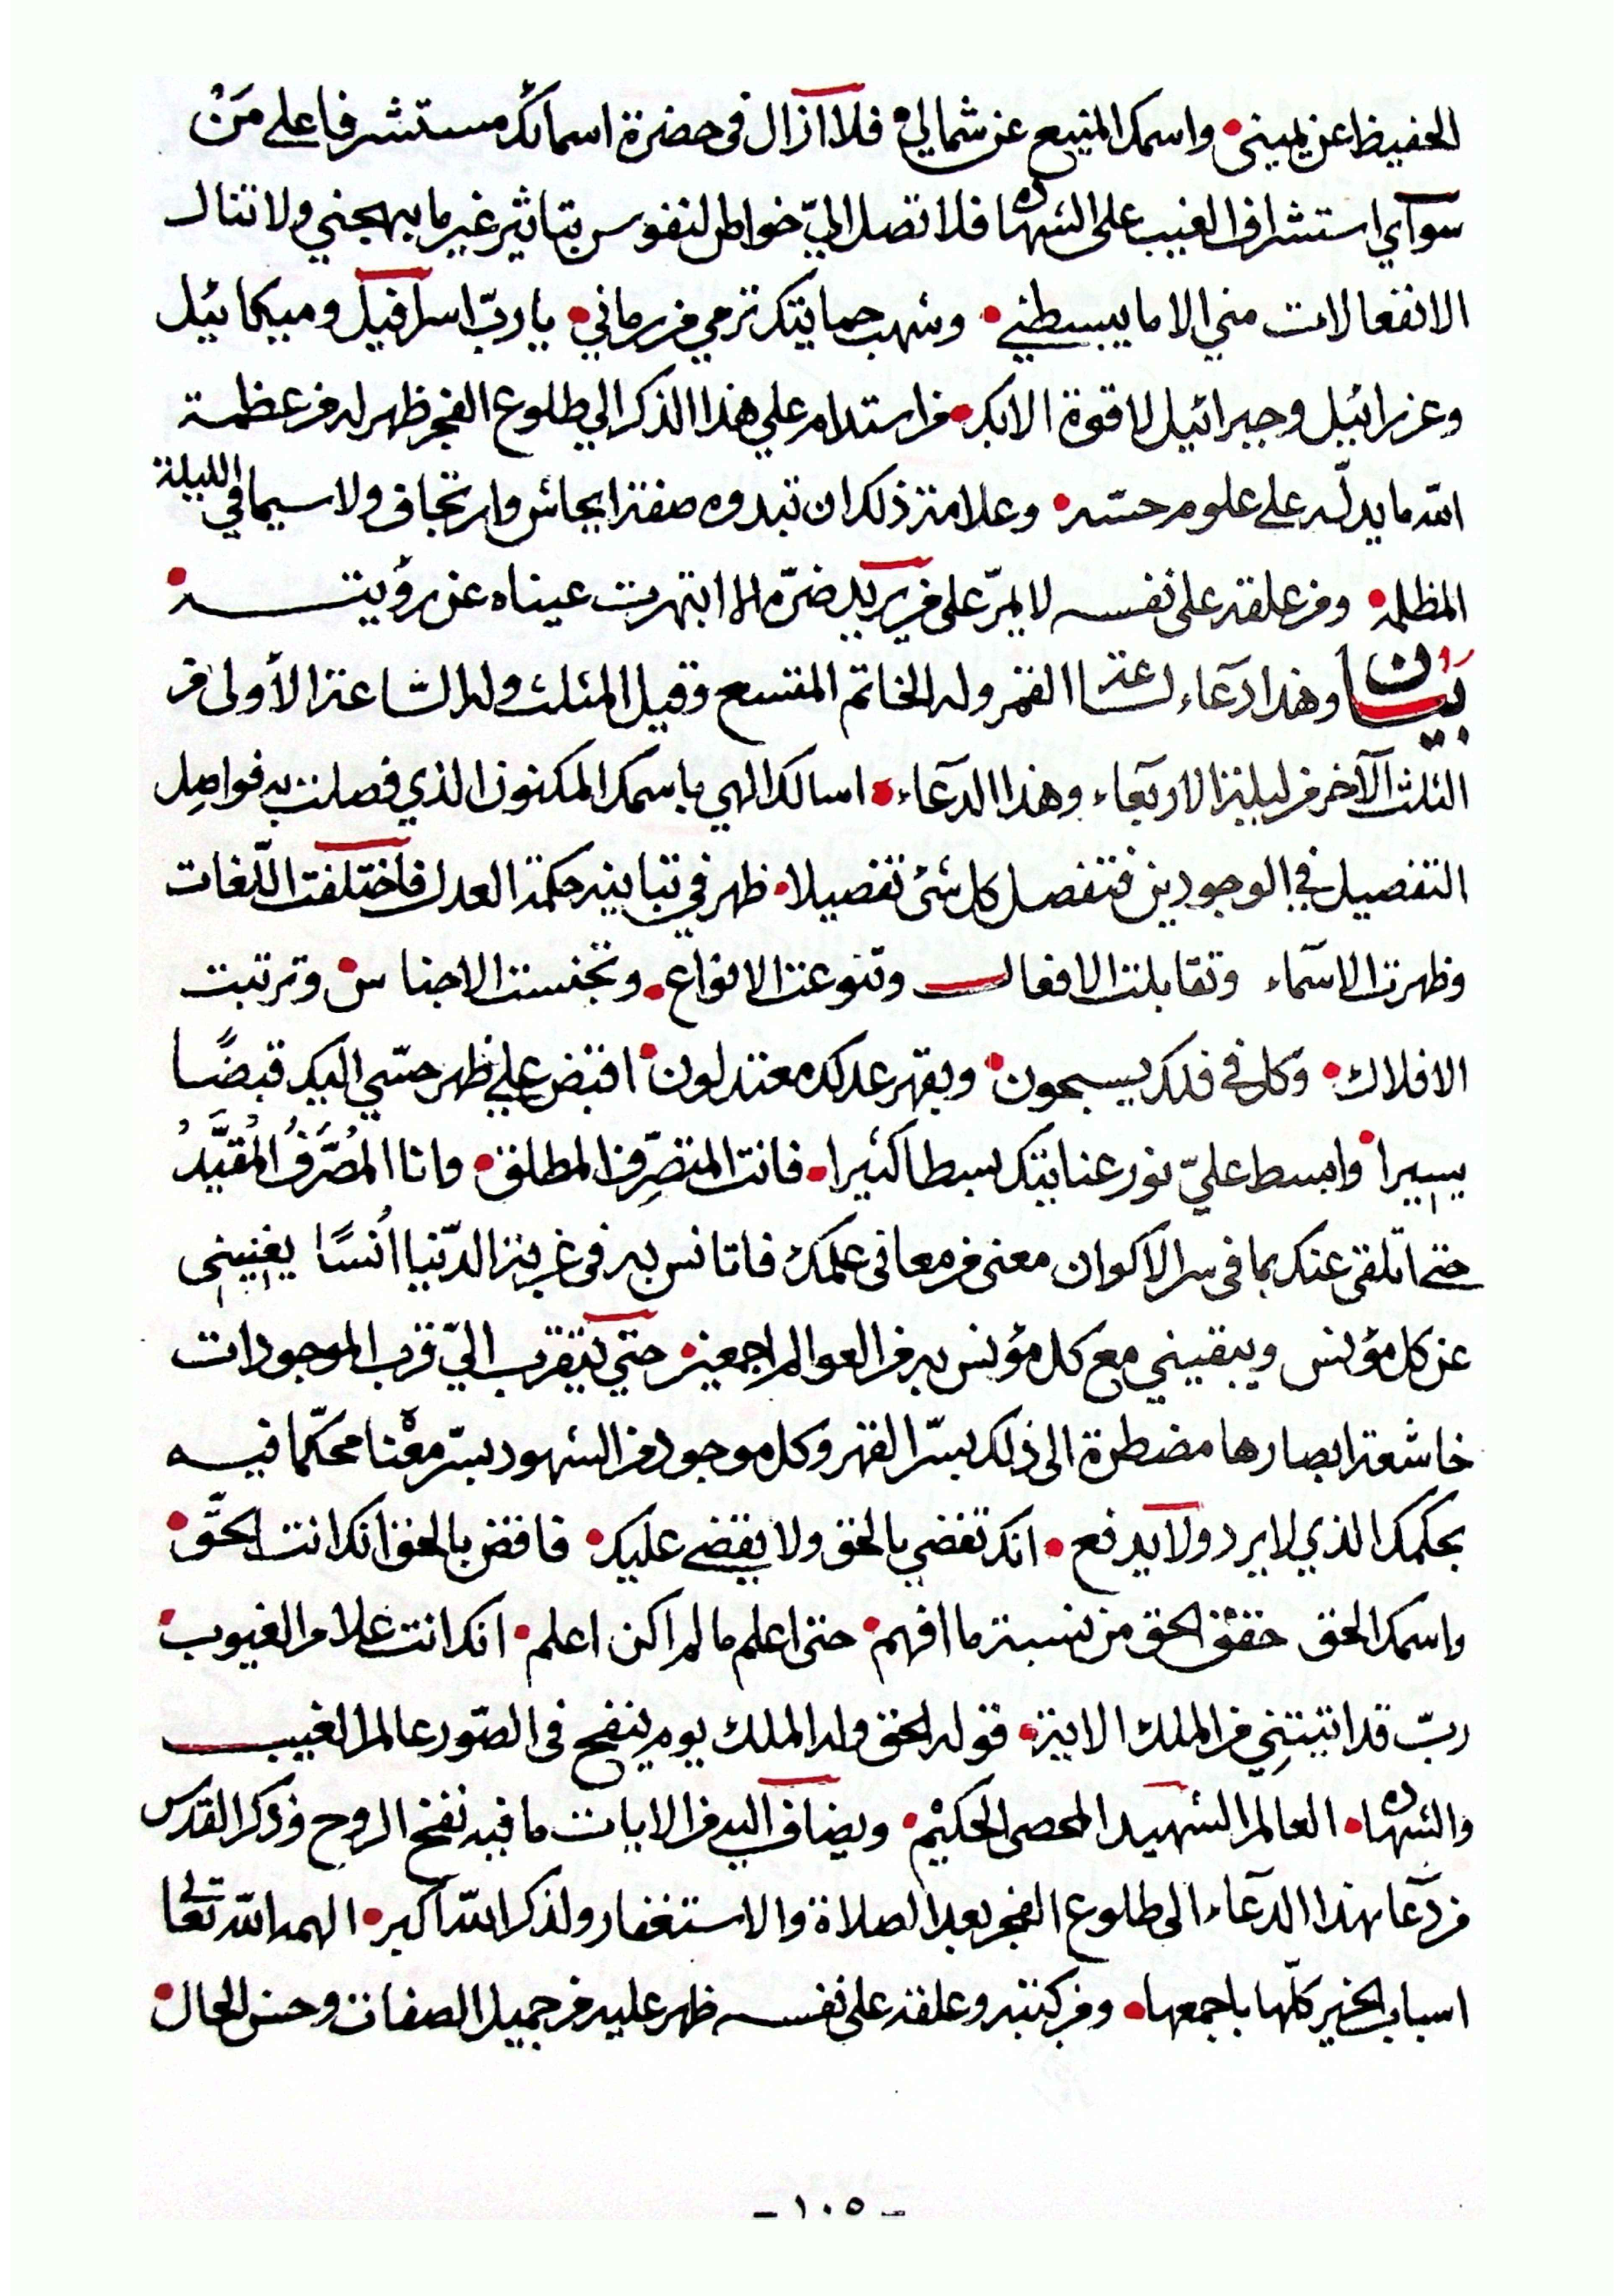 الحفيظ عن يميني • واسمك المنيع عن شمالي • فلا ازال في حضرة اسمائك مستشرفا على مَنْ
سوآي استشراف الغيب على الشهادة فلا تصل اليّ خواطر النفوس بتاثير غير ما يبهجني ولا تنال
الانفعالات مني الا ما يبسطني • وشهب حمايتك ترمي من رماني • يا ربّ اسرافيل وميكائيل
وعزرائيل وجبرائيل لا قوة الا بك • من استدام على هذا الذكر الي طلوع الفجر ظهر له من عظمة
الله ما يدلّه على علوم حسّه • وعلامة ذلك ان تبدوه صفة ايحاش وارتجاف ولا سيما في الليلة
المظلمة • ومن علقه على نفسه لا يمرّ على من يريد ضرّه الا ابتهرت عيناه عن رؤيته •
بيان وهذا دعآء لساعة القمر وله الخاتم المتسع وقيل المثلث وله الساعة الأولى من
الثلث الآخر من ليلة الاربعآء وهذا الدعآء • اسالك الهي باسمك المكنون الذي فصلت به فواصل
التفصيل في الوجودين فتفصل كل شئ تفصيلا • ظهر في تباينه حكمة العدل فاختلفت اللّغات
وظهرت الاسمآء وتقابلت الافعال وتنوعت الانواع • وتجنست الاجناس • وترتبت
الافلاك • وكل في فلك يسبحون • وبقهر عدلك معتدلون • اقبض علي ظهر حسّي اليك قبضًا
يسيرا • وابسط عليّ نور عنايتك بسطا كثيرا • فانت المتصرِّف المطلق • وانا المُصَرَّفُ المُقيَّدُ
حتى اتلقى عنك بما في سر الاكوان معنى من معاني علمك فاتانس به في غربة الدّنيا اُنسًا يغنيني
عن كل مؤنس ويبقيني مع كل مؤنس به من العوالم اجمعين • حتي يتقرب اليّ قرب الموجودات
خاشعة ابصارها مضطرة الى ذلك بسرّ القهر وكل موجود من الشهود بسرّ معْنا محكّما فيه
بحكمك الذي لا يرد ولا يدفع • انك تقضي بالحق ولا يقضى عليك • فاقض بالحق انك انت الحقّ •
واسمك الحق حقق الحق من نسبة ما افهم • حتى اعلم ما لم اكن اعلم • انك انت علام الغيوب •
ربّ قد اتيتنِي من الملك الاية • قوله الحق وله الملك يوم ينفخ في الصّور عالم الغيب
والشهادة • العالم الشهيد المحصى الحكيم • ويضاف اليه من الايات ما فيه نفخ الروح وذكر القدس
من دعا بهذا الدعآء الى طلوع الفجر بعد الصلاة والاستغفار ولذكر الله اكبر • الهمه الله تعالى
اسباب الخير كلّها باجمعها • ومن كتبه وعلقه على نفسه ظهر عليه من جميل الصفات وحسن الحال •
- ١٠٥ -